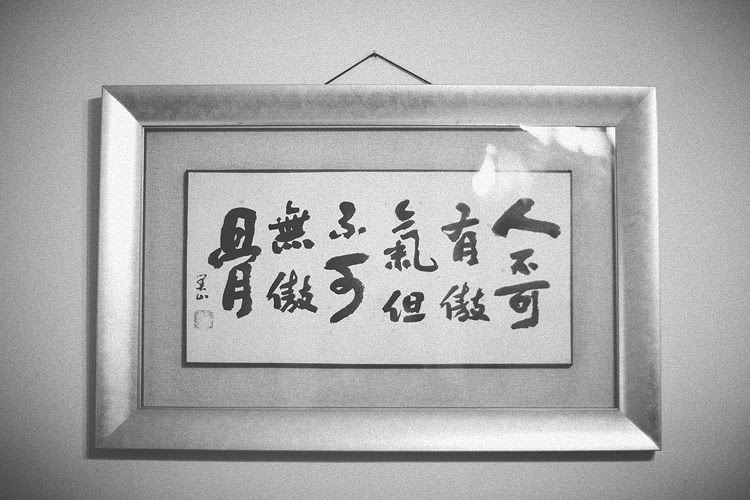 人不可
有傲
氣但
不可
無傲
骨